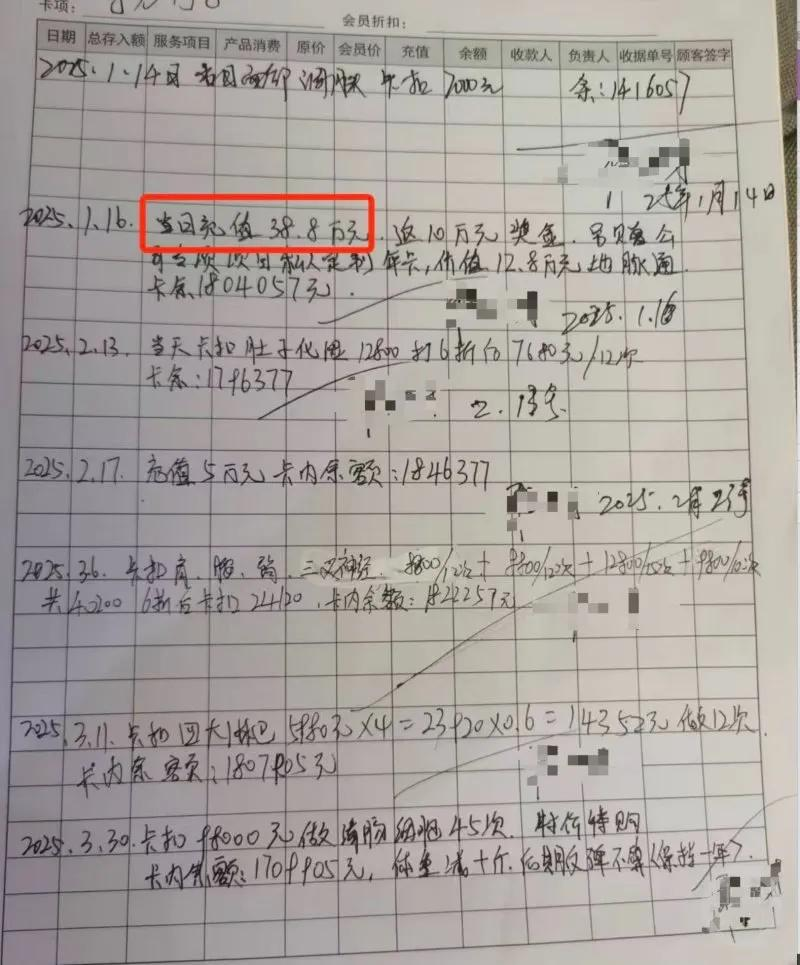 卡项:
会员折扣:
日期 总存入额 服务项目 产品消费 原价 会员价 充值 余额 收款人 负责人 收据单号 顾客签字
2025.1.14日 卡扣 7000元 余:1416057
25年1月14日
2025.1.16. 当日充值 38.8万元. 返10万元奖金.
专项项目私人定制年卡,价值12.8万元
卡余1804057元.
2025.1.16
2025.2.13. 当天卡扣肚子化 12800打6折后7680元/12次
卡余:1796377
2.13号
2025.2.17. 充值5万元 卡内余额:1846377
2025.2月
2025.3.6. 卡扣肩、腰、 三叉神经. 9800/12次+12800/ +9800/
共40200 6折后卡扣24120.卡内余额:1822257元
2025.3.11.卡扣四大淋巴5980元×4=23920×0.6=14352元 做12次.
卡内余额:1807905元
2025.3.30.卡扣98000元做 45次. 特价特购
卡内余额:1709905元, 体重减十斤.后期反弹不算(保持一年).